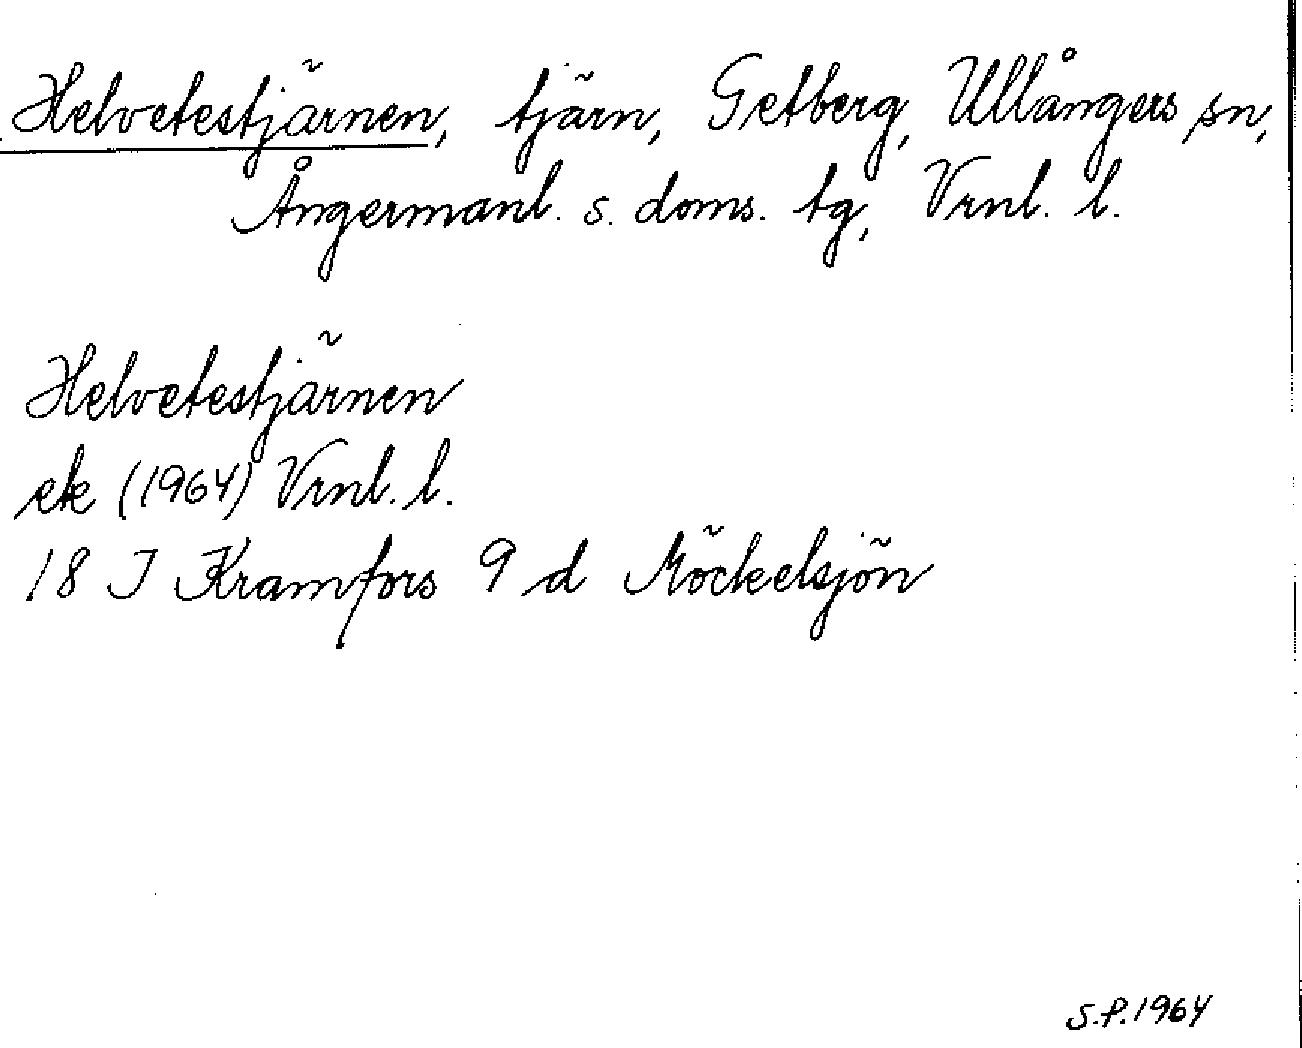 Helvetestjärnen, tjärn, Getberg, Ullångers sn,
Ångermanl. s. doms. tg, Vrnl. l.
Helvetestjärnen
ek (1964) Vrnl. l.
18 I Kramfors 9 d Möckelsjön
S.P. 1964